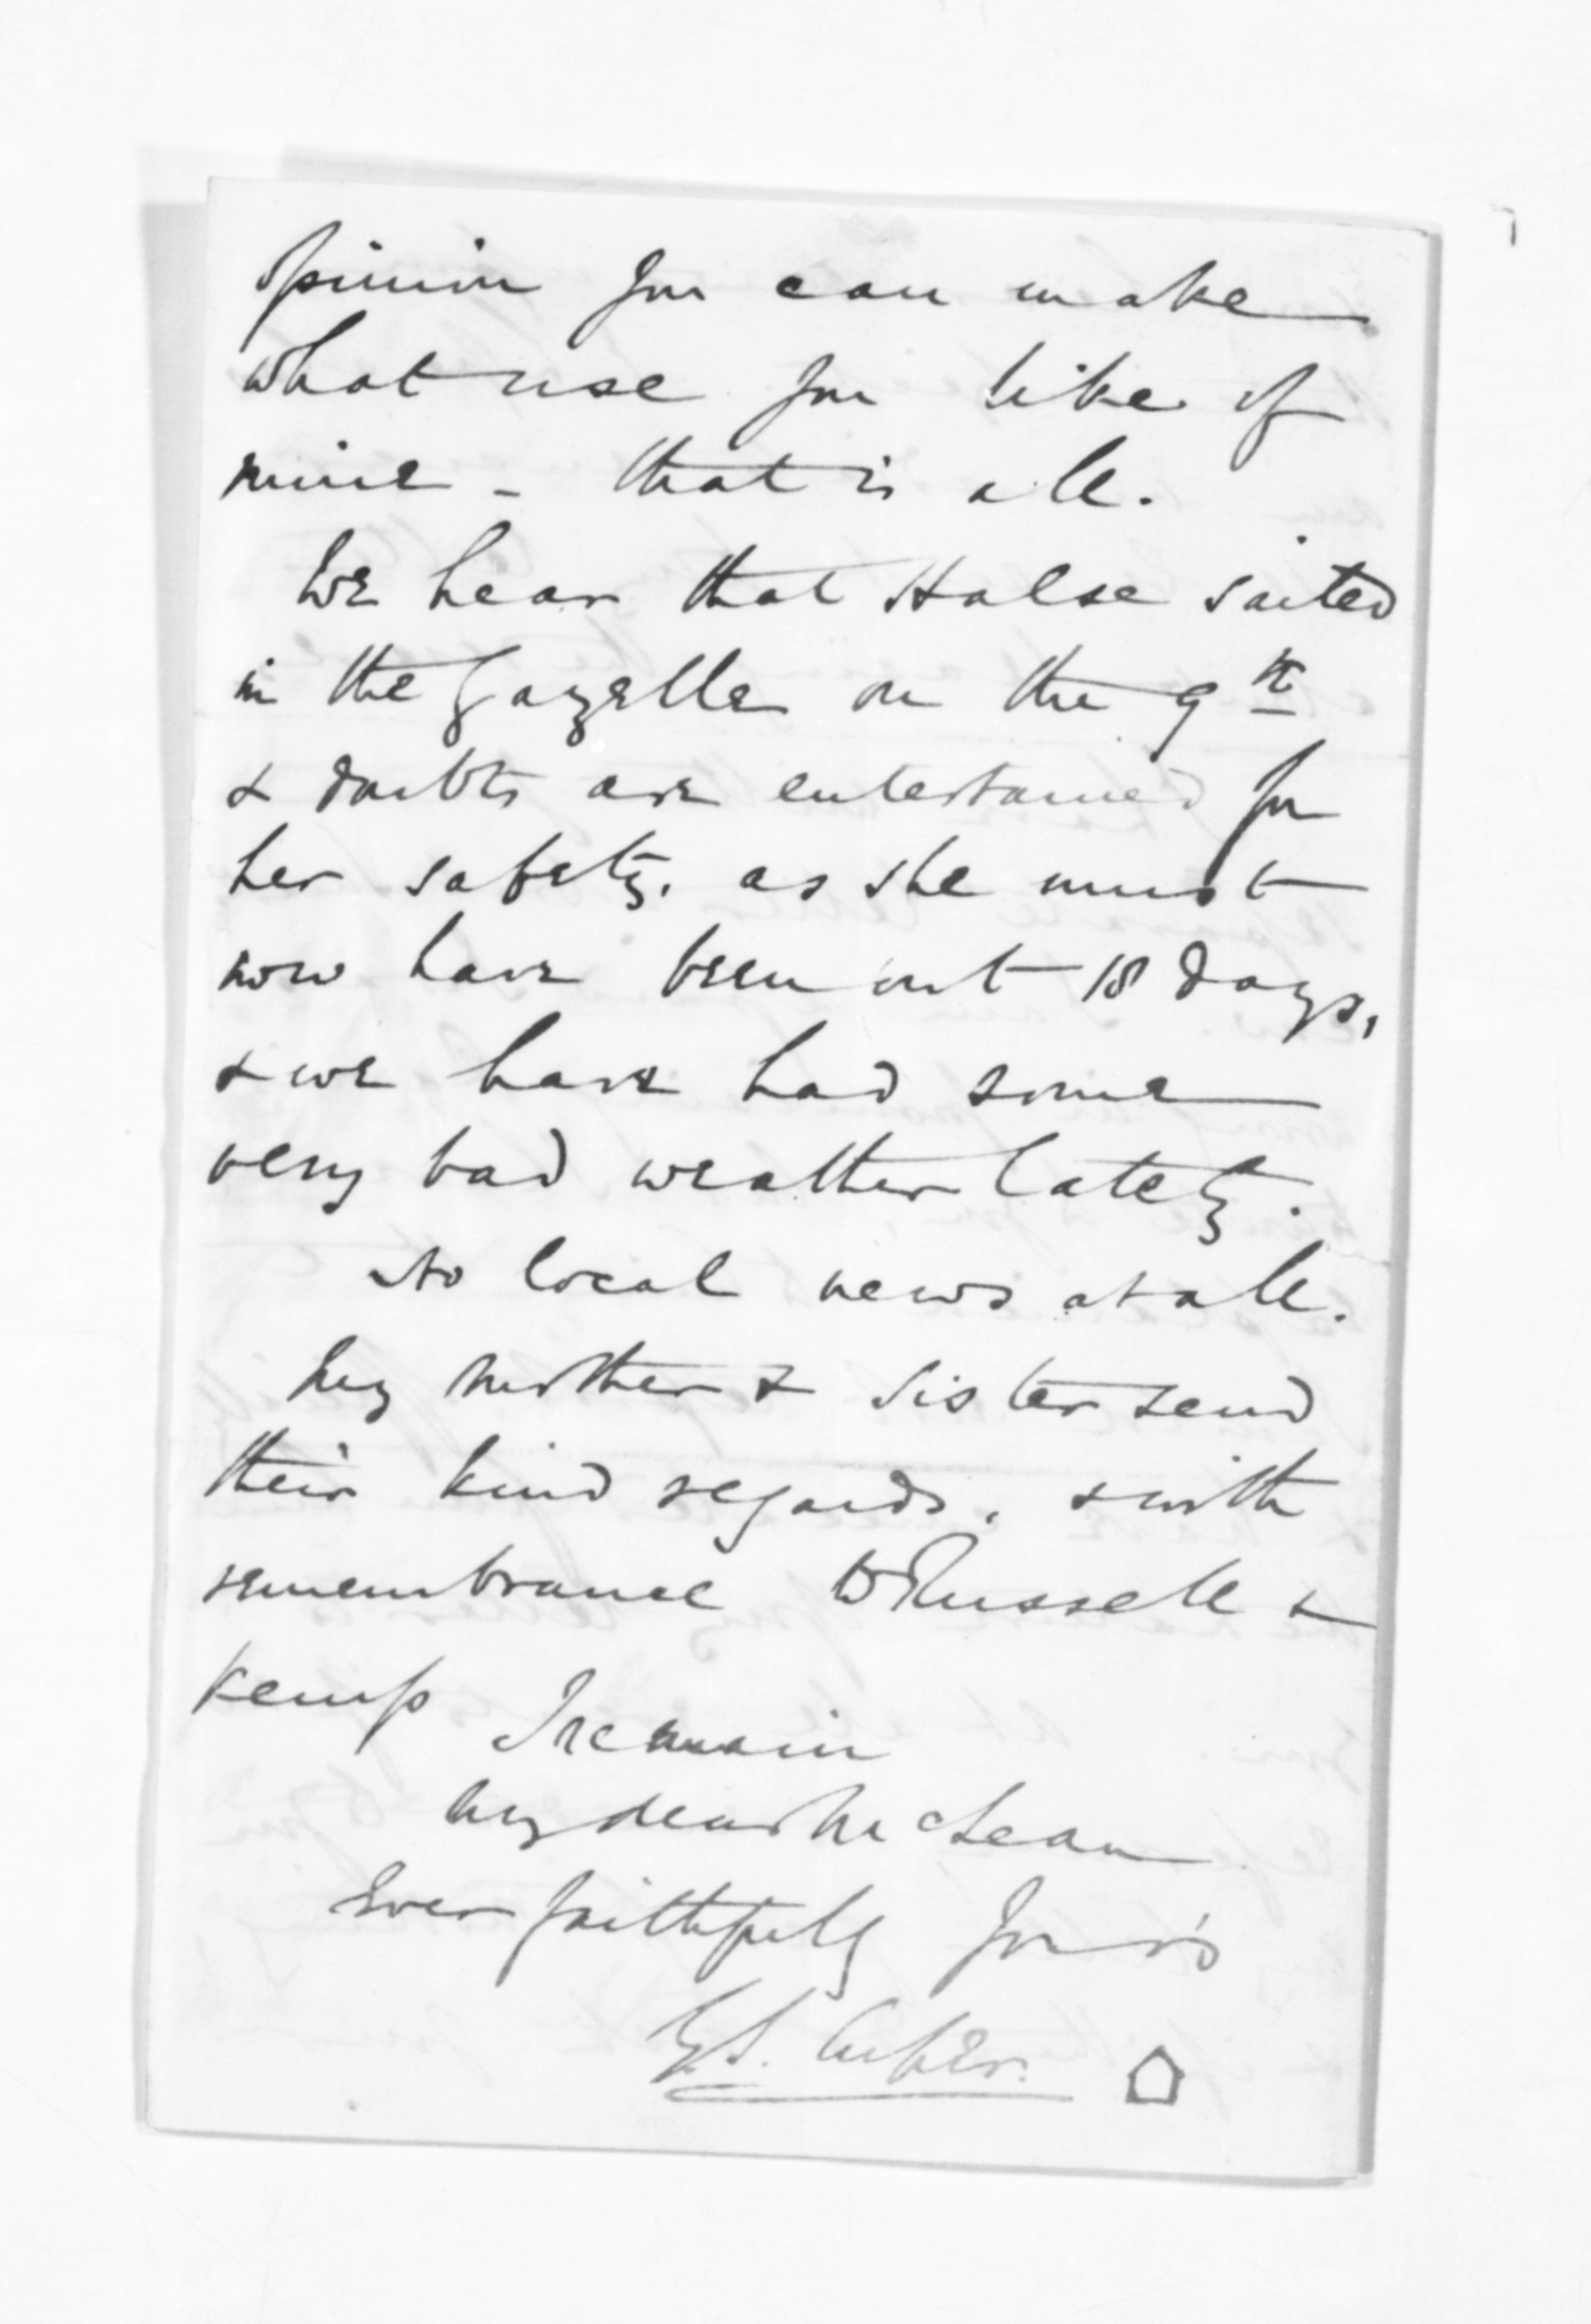 opinion you can make
what use you like of
mine - that is all.
We hear that Halse sailed
in the Gazelle on the 9th
& doubts are entertained for
her safety, as she must
now have been out 18 days,
& we have had some
very bad weather lately.
No local news at all.
My mother & sister send
their kind regards, & with
remembrance to Russell &
Kemp I remain
My dear McLean
Ever faithfully Yours
G.S. Cooper.